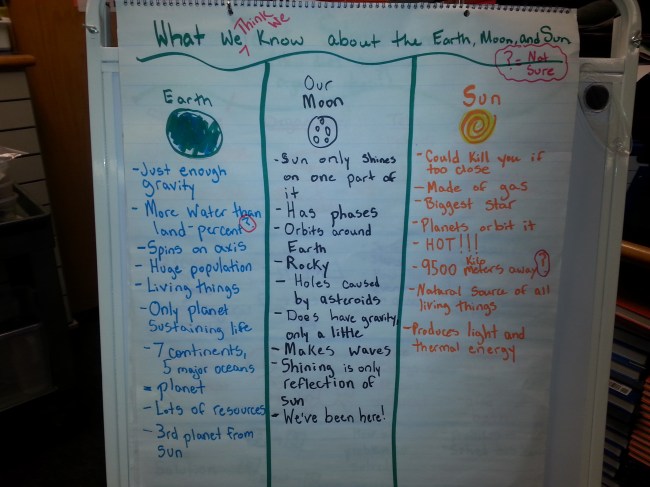 What We Think We Know about the Earth, Moon, and Sun
? = Not
Sure
Earth
- Just enough
gravity
- More Water than
land - percent ?
- Spins on axis
- Huge population
- Living things
- Only planet
sustaining life
- 7 continents,
5 major oceans
= planet
- Lots of resources
- 3rd planet from
sun
Our
Moon
- Sun only shines
on one part of
it
- Has phases
- Orbits around
Earth
- Rocky
- Holes caused
by asteroids
- Does have gravity,
only a little
- Makes waves
- Shining is only
reflection of
sun
- We've been here!
Sun
- Could kill you if
too close
- Made of gas
- Biggest star
- Planets orbit it
- HOT!!!
- 9500 Kilo meters away ?
- Natural source of all
living things
- Produces light and
thermal energy